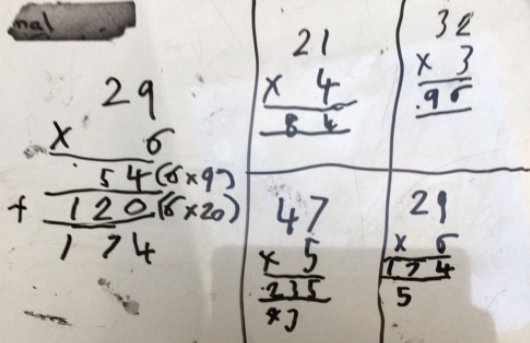 nal
29
x 6
54 (6x9)
+ 120 (6x20)
174
21
x 4
84
32
x 3
96
47
x 5
235
29
x 6
174
5